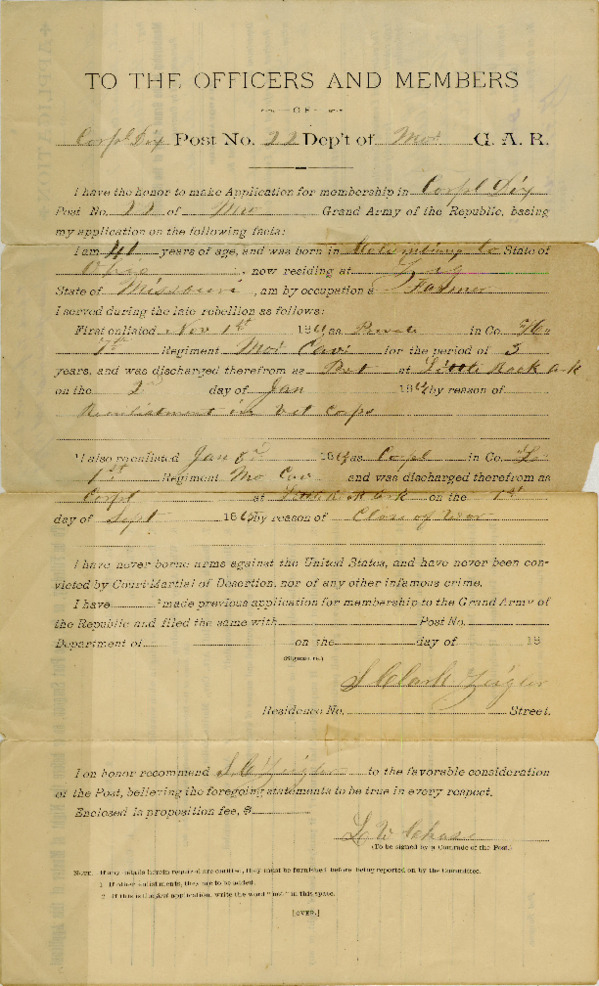 TO THE OFFICERS AND MEMBERS
OF
Corpl Dix Post No. 22 Dep't of Mo. G. A. R.
I have the honor to make Application for membership in Corpl Dix
Post No. 22 of Mo Grand Army of the Republic, basing
my application on the following facts:
I am 41 years of age, and was born in Columbiana Co State of
Ohio, now residing at
State of Missouri, am by occupation a Farmer
I served during the late rebellion as follows:
First enlisted Nov 1st 186 as Private in Co.
7th Regiment Mo. Cav. for the period of 3
years, and was discharged therefrom as Pvt at Little Rock Ark
on the 2 day of Jan 186 by reason of
Reenlistment in Vet Corps
I also reenlisted Jan 186 as Corpl in Co.
1st Regiment Mo Cav and was discharged therefrom as
Corpl at Little R Ark on the 1st
day of Sept 186 by reason of Close of War
I have never borne arms against the United States, and have never been con-
victed by Court-Martial of Desertion, nor of any other infamous crime.
I have made previous application for membership to the Grand Army of
the Republic and filed the same with Post No.
Department of on the day of 18
(Signature.)
S Clark Zeigler
Residence No. Street.
I on honor recommend S C Zeigler to the favorable consideration
of the Post, believing the foregoing statements to be true in every respect.
Enclosed is proposition fee, $
L W Chase
(To be signed by a Comrade of the Post.)
NOTE. If any details herein required are omitted, they must be furnished before being reported on by the Committee.
1 If other enlistments, they are to be added.
2 If this is original application, write the word "not" in this space.
[OVER.]